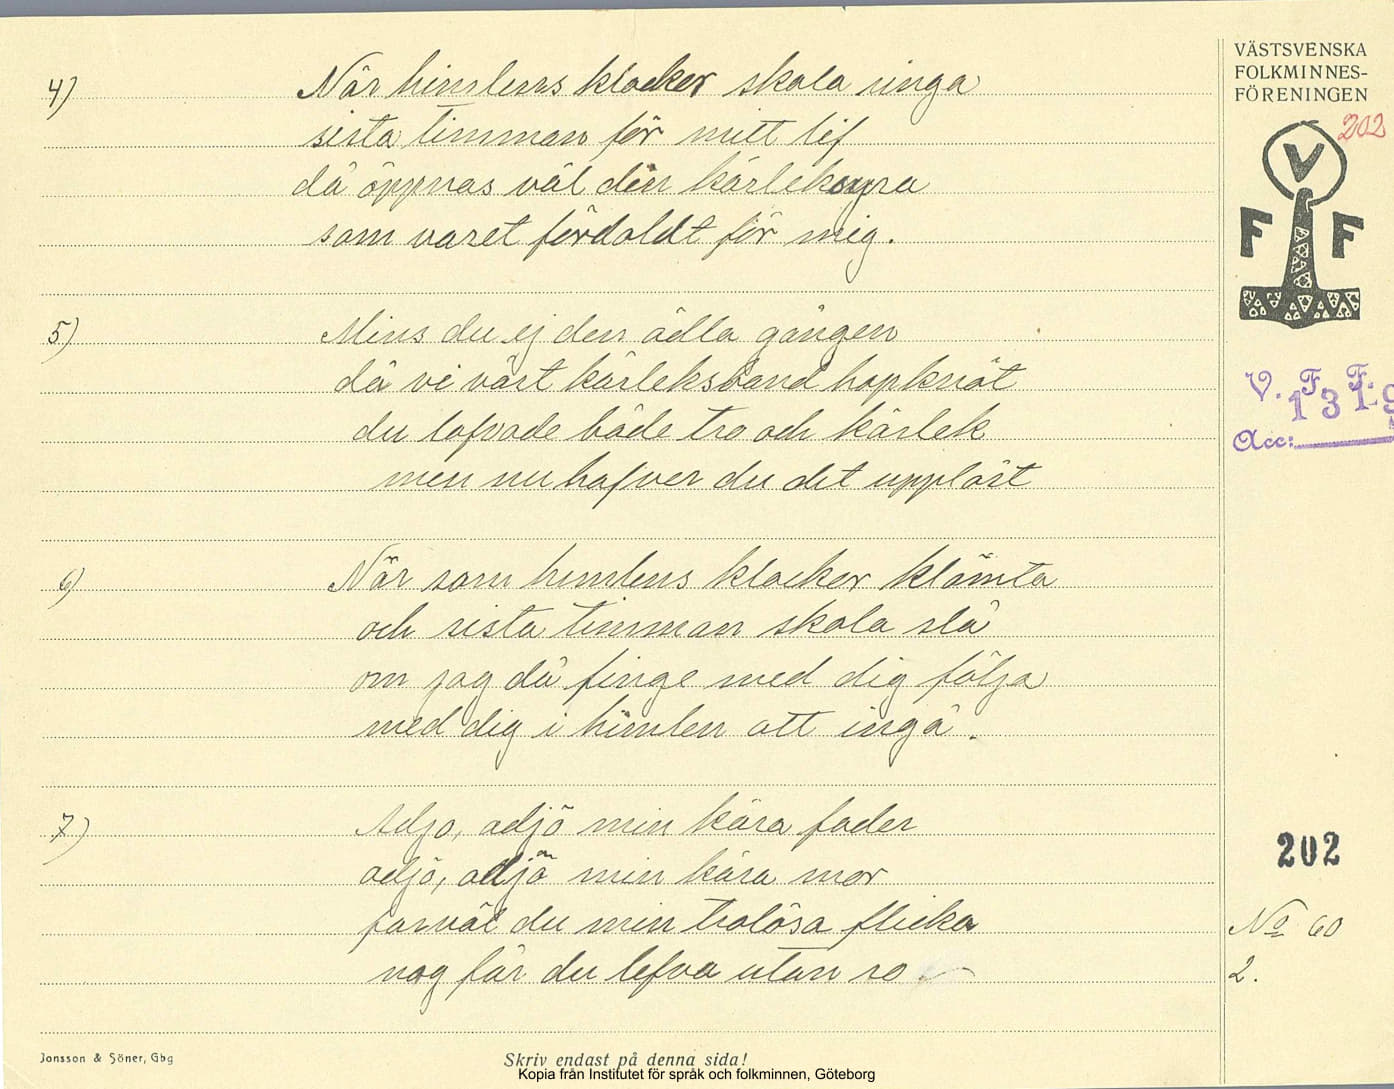 4) När himlens klockor skola ringa
sista timman för mitt lif
då öppnas väl den kärleks
som varet fördoldt för mig.
5) Mins du ej den ädla gången
då vi vårt kärleksband hopknöt
du lofvade både tro och kärlek
men nu hafver du det upplöst
6) När som himlens klockor klämta
och sista timman skola slå
om jag då finge med dig följa
med dig i himlen att ingå.
7) Adjo, adjö min kära fader
adjö, adjö min kära mor
farväl du min trolösa flicka
nog får du lefva utan ro
VÄSTSVENSKA
FOLKMINNES-
FÖRENINGEN
202
V
F F
V. F. F.
131
Acc:
202
No 60
2.
Jonsson & Söner, Gbg
Skriv endast på denna sida!
Kopia från Institutet för språk och folkminnen, Göteborg